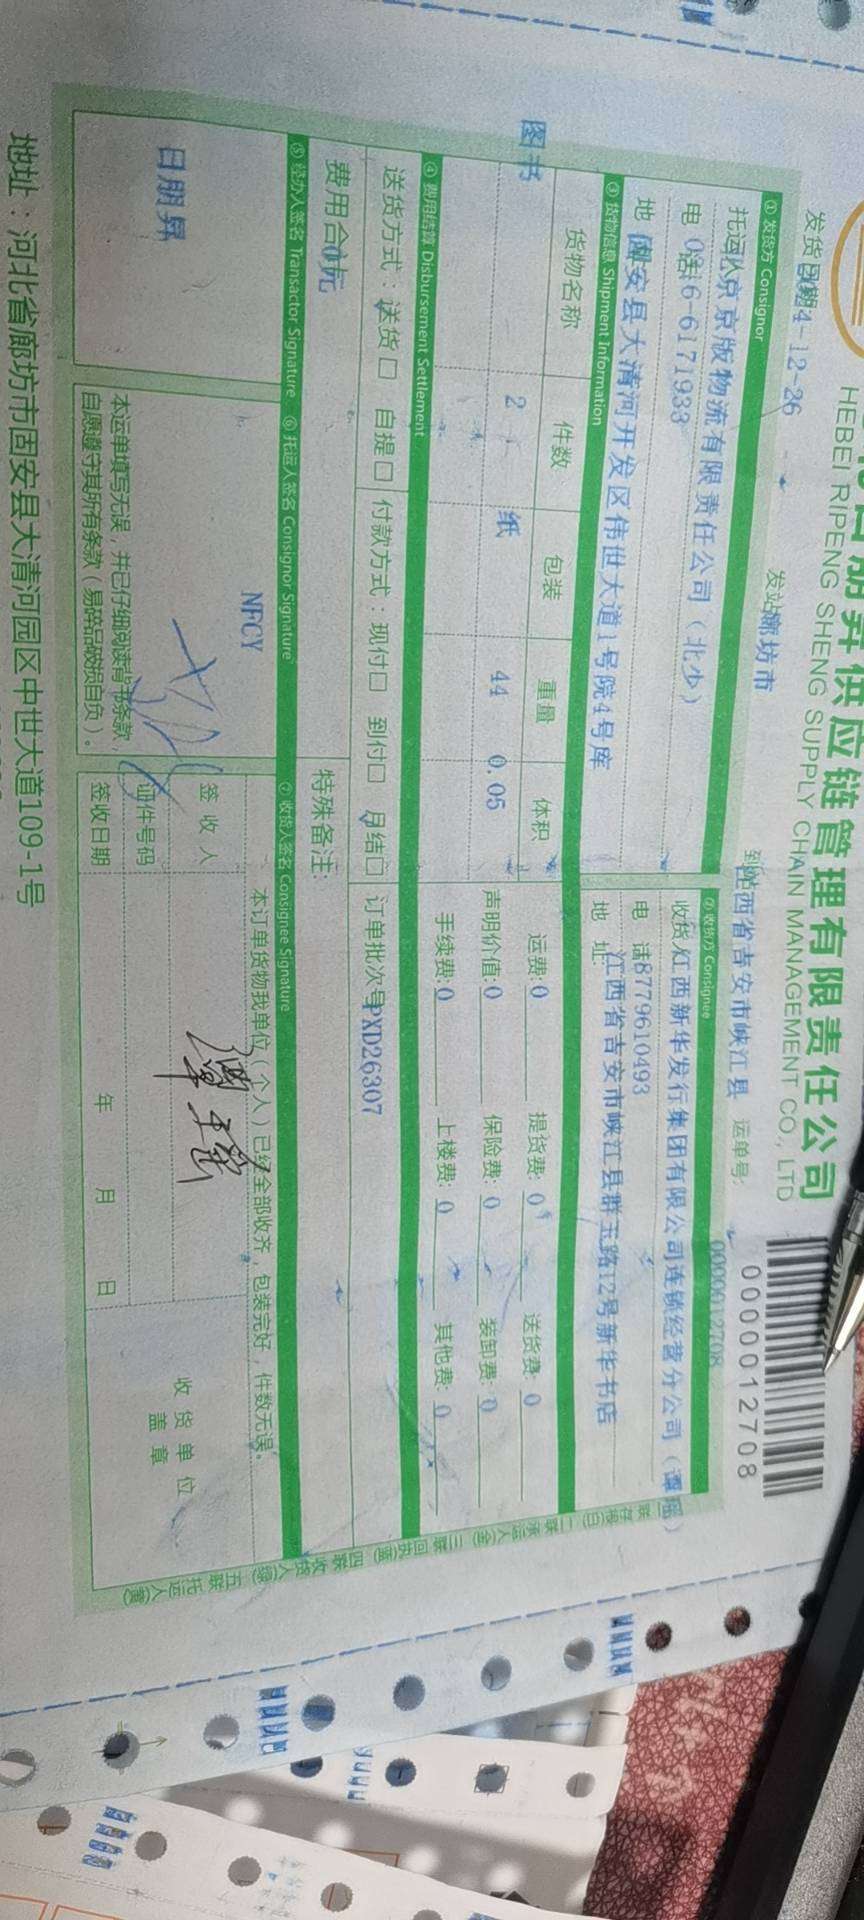 日朋昇供应链管理有限责任公司
HEBEI RIPENG SHENG SUPPLY CHAIN MANAGEMENT CO., LTD
0000012708
发货日期 2024-12-26 发站 廊坊市 到站 江西省吉安市峡江县 运单号: 0000012708
① 发货方 Consignor
托运人 北京京版物流有限责任公司（北少）
电 话 0316-6171933
地 址 固安县大清河开发区伟世大道1号院4号库
② 收货方 Consignee
收货人 江西新华发行集团有限公司连锁经营分公司（谭瑶）
电 话 18779610493
地 址: 江西省吉安市峡江县群玉路12号新华书店
③ 货物信息 Shipment Information
货物名称 件数 包装 重量 体积
图书 2 纸 44 0.05
运费: 0 提货费: 0 送货费: 0
声明价值: 0 保险费: 0 装卸费: 0
手续费: 0 上楼费: 0 其他费: 0
④ 费用结算 Disbursement Settlement
送货方式：送货□ 自提□ 付款方式：现付□ 到付□ 月结□ 订单批次号 PXD26307
费用合计 0元 特殊备注:
⑤ 经办人签名 Transactor Signature ⑥ 托运人签名 Consignor Signature ⑦ 收货人签名 Consignee Signature
日朋昇
NFCY
本运单填写无误，并已仔细阅读背书条款，
自愿遵守其所有条款（易碎品破损自负）。
本订单货物我单位（个人）已经全部收齐，包装完好，件数无误。
签收人
证件号码
签收日期 年 月 日
收货单位
盖章
一联存根(白) 二联承运人(金) 三联回执(蓝) 四联收货人(绿) 五联托运人(黄)
地址：河北省廊坊市固安县大清河园区中世大道109-1号